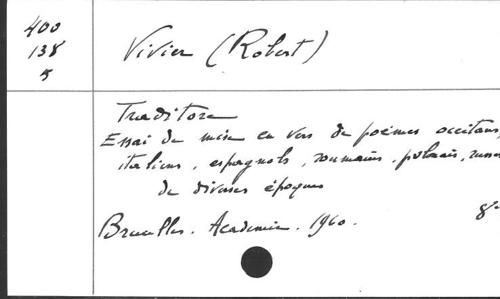 400
138
5
Vivier (Robert)
Traditore
Essai de mise en vers de poèmes occitans,
italiens, espagnols, roumains, polonais, russes
de diverses époques
8°
Bruxelles. Academie. 1960.